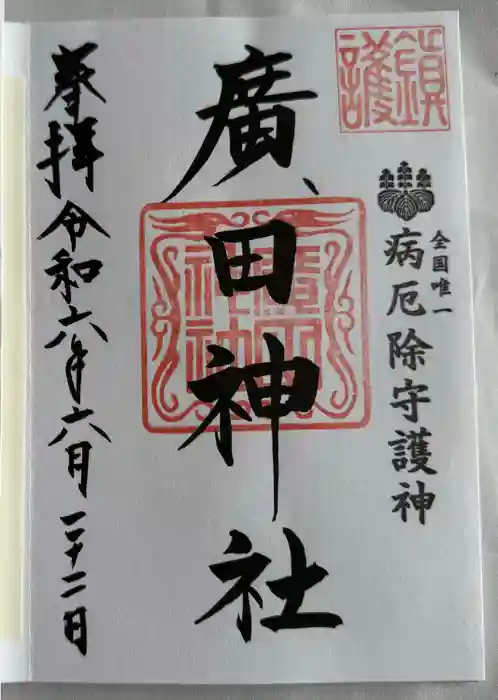 鎮護
全国唯一
病厄除守護神
廣田神社
廣田
神社
奉拝 令和六年六月二十二日